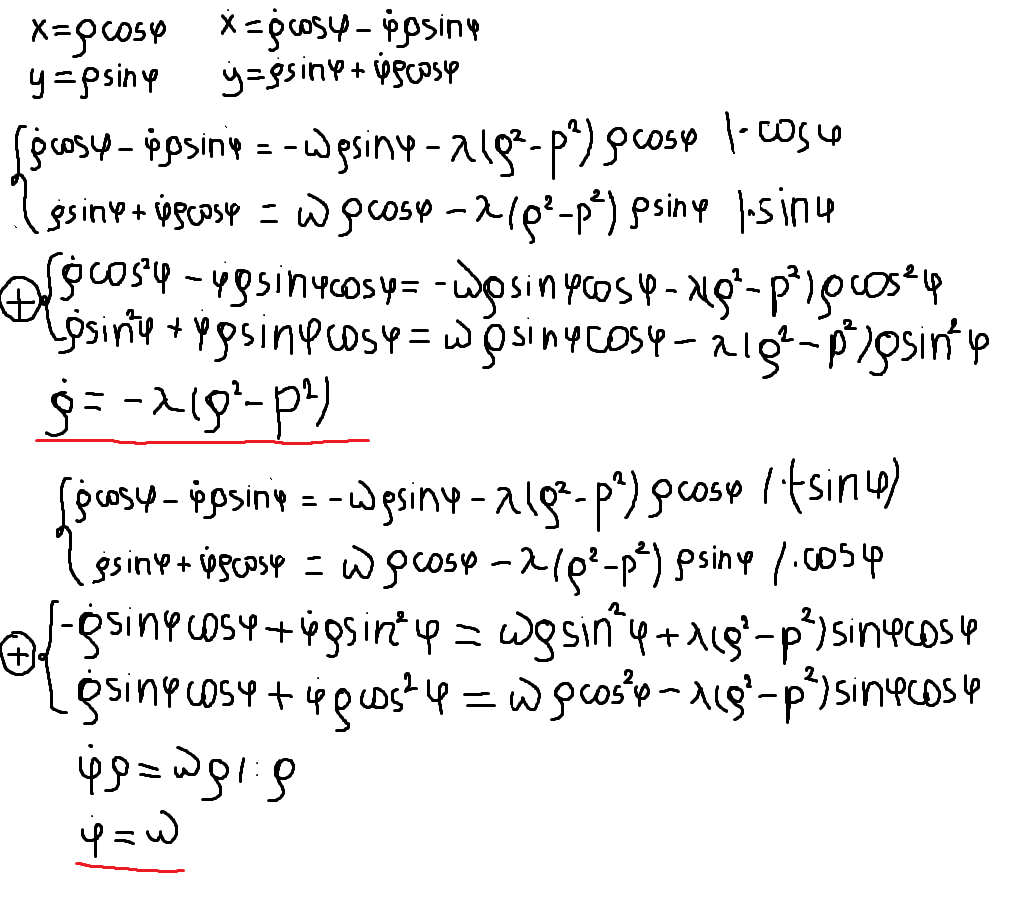 x=ρcosφ ẋ=ρ̇cosφ-φ̇ρsinφ
y=ρsinφ ẏ=ρ̇sinφ+φ̇ρcosφ
{ρ̇cosφ-φ̇ρsinφ=-ωρsinφ-λ(ρ²-p²)ρcosφ |·cosφ
ρ̇sinφ+φ̇ρcosφ=ωρcosφ-λ(ρ²-p²)ρsinφ |·sinφ
⊕{ρ̇cos²φ-φ̇ρsinφcosφ=-ωρsinφcosφ-λ(ρ²-p²)ρcos²φ
ρ̇sin²φ+φ̇ρsinφcosφ=ωρsinφcosφ-λ(ρ²-p²)ρsin²φ
ρ̇=-λ(ρ²-p²)
{ρ̇cosφ-φ̇ρsinφ=-ωρsinφ-λ(ρ²-p²)ρcosφ /·(-sinφ)
ρ̇sinφ+φ̇ρcosφ=ωρcosφ-λ(ρ²-p²)ρsinφ /·cosφ
⊕{-ρ̇sinφcosφ+φ̇ρsin²φ=ωρsin²φ+λ(ρ²-p²)sinφcosφ
ρ̇sinφcosφ+φ̇ρcos²φ=ωρcos²φ-λ(ρ²-p²)sinφcosφ
φ̇ρ=ωρ/:ρ
φ̇=ω